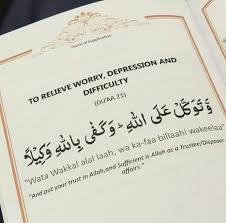 TO RELIEVE WORRY, DEPRESSION AND
DIFFICULTY
وَّتَوَكَّلْ عَلَى اللّٰهِ ؕ وَكَفٰى بِاللّٰهِ وَكِيْلًا
"Wata Wakkal alal laah, wa ka-faa billaahi wakeelaa"
"And put your trust in Allah,and Sufficient is Allah as a Trustee/Disposer
affairs."